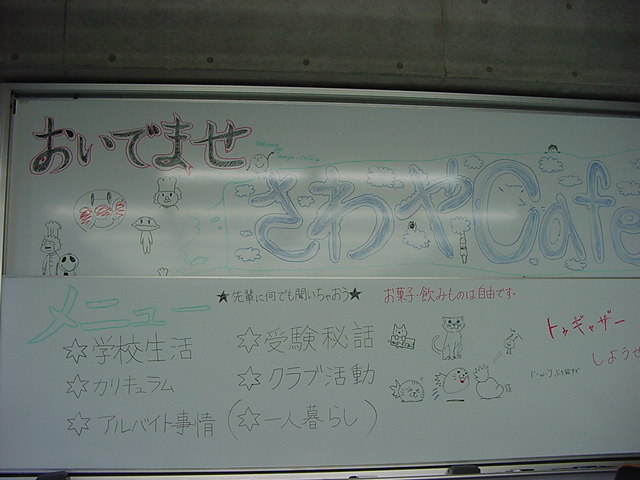 おいでませ
さわやCafe
メニュー
★先輩に何でも聞いちゃおう★
お菓子・飲みものは自由です。
☆学校生活
☆受験秘話
☆カリキュラム
☆クラブ活動
☆アルバイト事情
(☆一人暮らし)
トゥギャザー
しようぜ